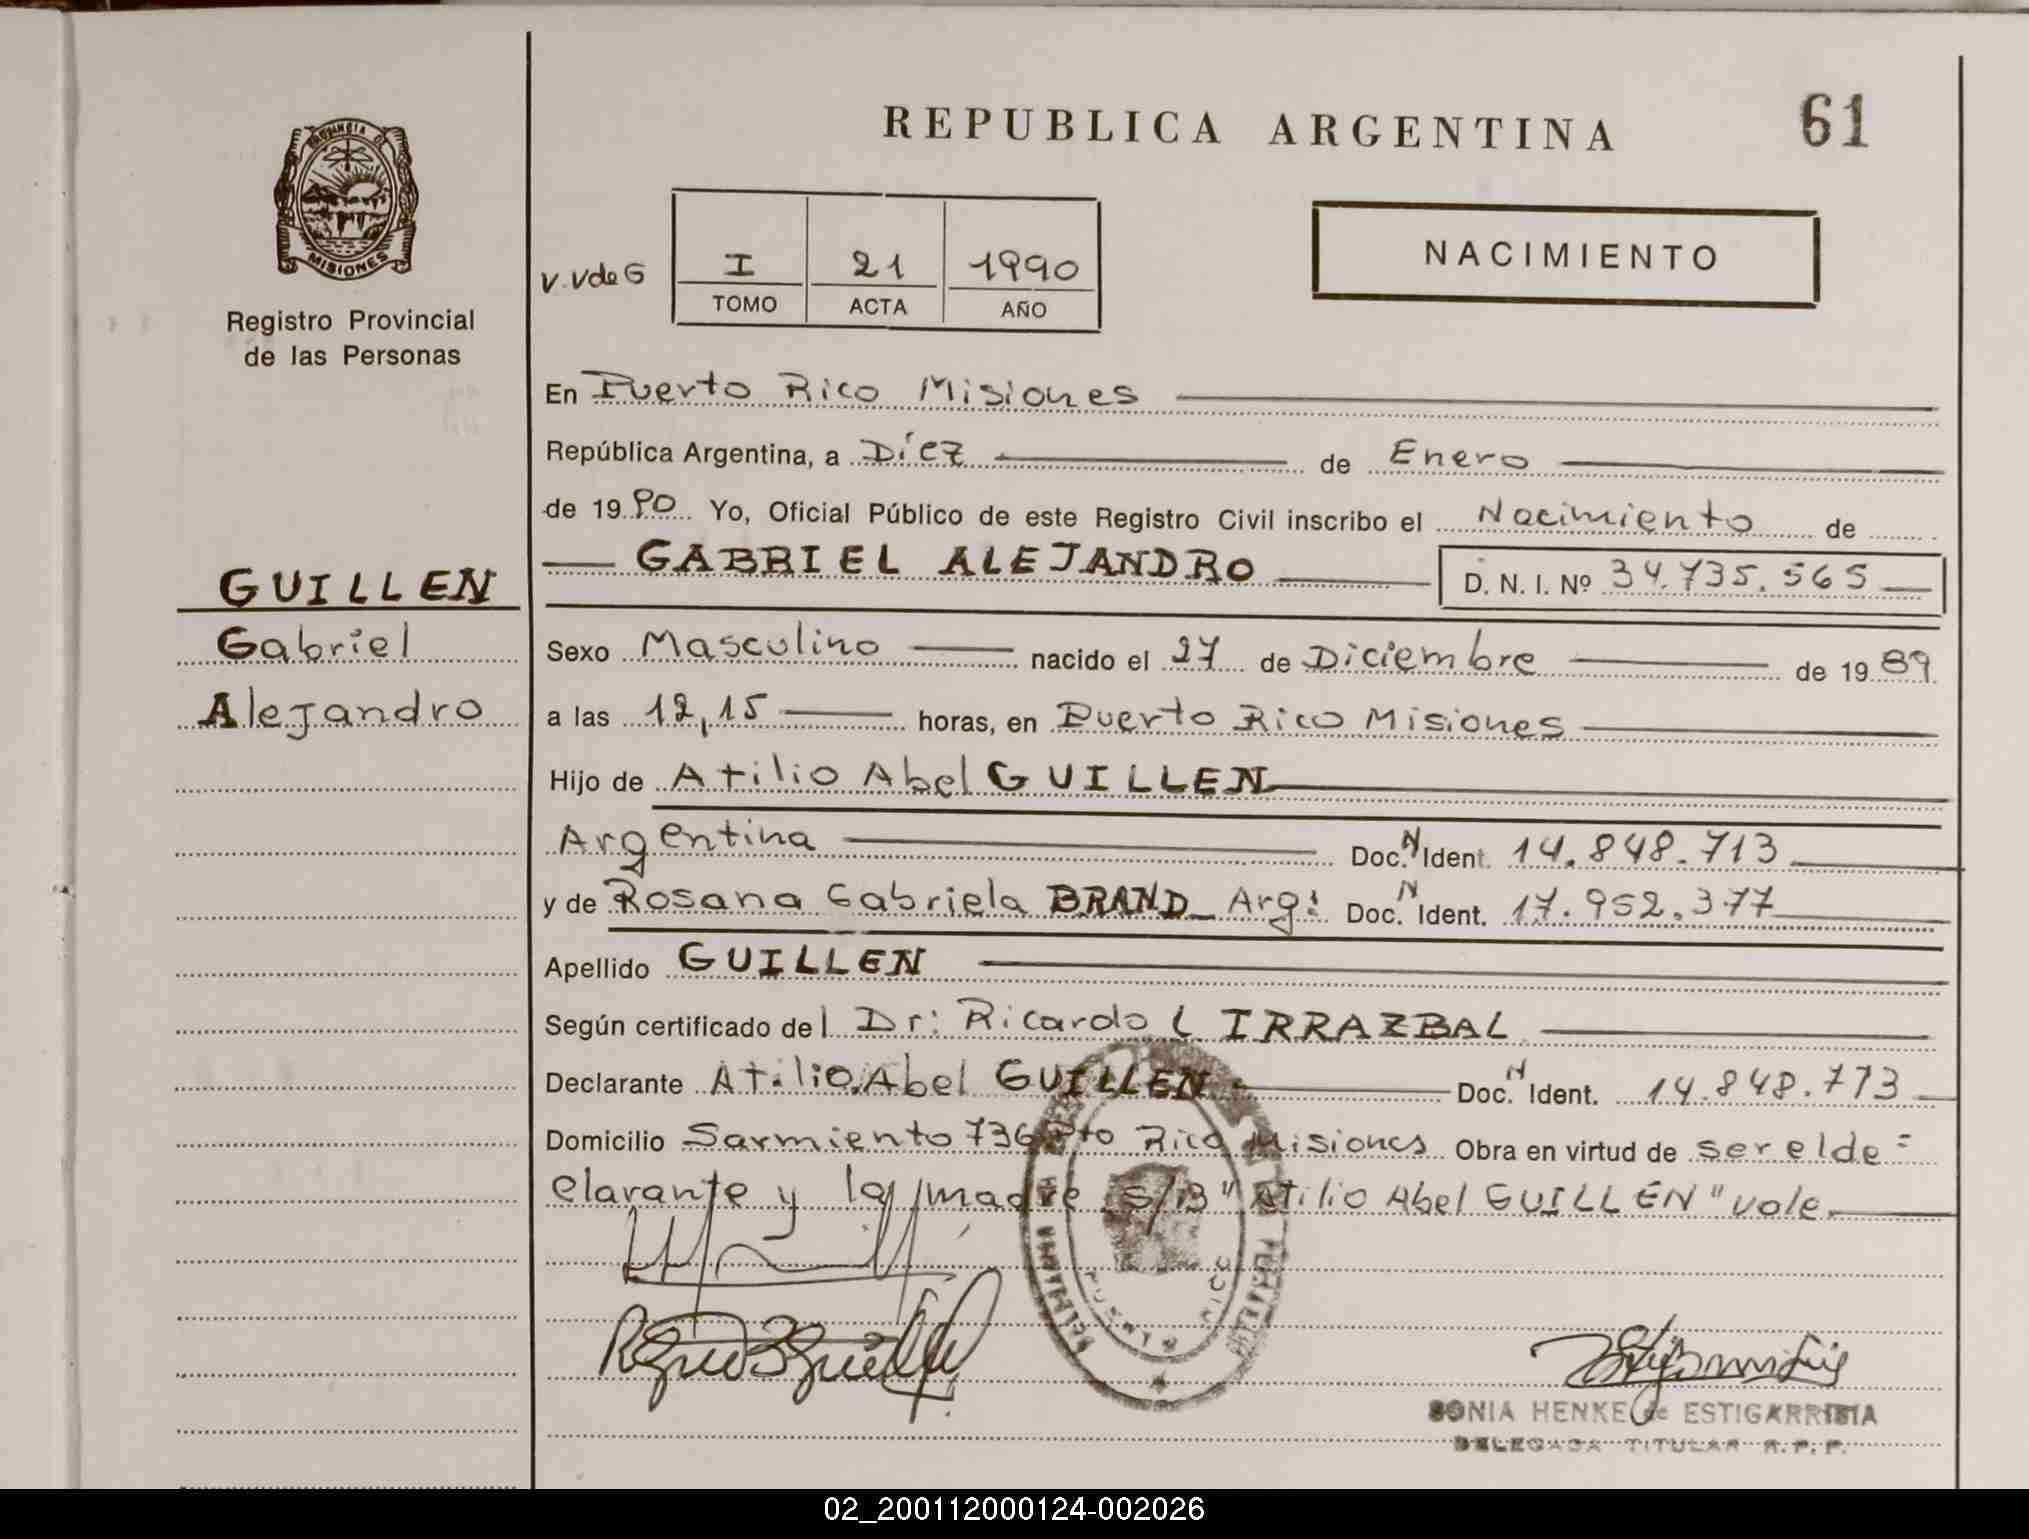 REPUBLICA ARGENTINA
61
PROVINCIA DE
MISIONES
Registro Provincial
de las Personas
V. V de G
I 21 1990
TOMO ACTA AÑO
NACIMIENTO
En Puerto Rico Misiones
República Argentina, a Díez de Enero
de 19 90 Yo, Oficial Público de este Registro Civil inscribo el Nacimiento de
GABRIEL ALEJANDRO D. N. I. Nº 34.735.565
GUILLEN
Gabriel
Alejandro
Sexo Masculino nacido el 27 de Diciembre de 19 89
a las 12,15 horas, en Puerto Rico Misiones
Hijo de Atilio Abel GUILLEN
Argentina Doc. N Ident. 14.848.713
y de Rosana Gabriela BRAND Arg: Doc. N Ident. 17.952.377
Apellido GUILLEN
Según certificado del Dr: Ricardo L IRRAZBAL
Declarante Atilio Abel GUILLEN Doc. N Ident. 14.848.773
Domicilio Sarmiento 736 Pto Rico Misiones Obra en virtud de ser el de=
clarante y la madre S/B "Atilio Abel GUILLEN" vale
PUERTO RICO
SONIA HENKE de ESTIGARRIBIA
DELEGADA TITULAR R. P. P.
02_200112000124-002026